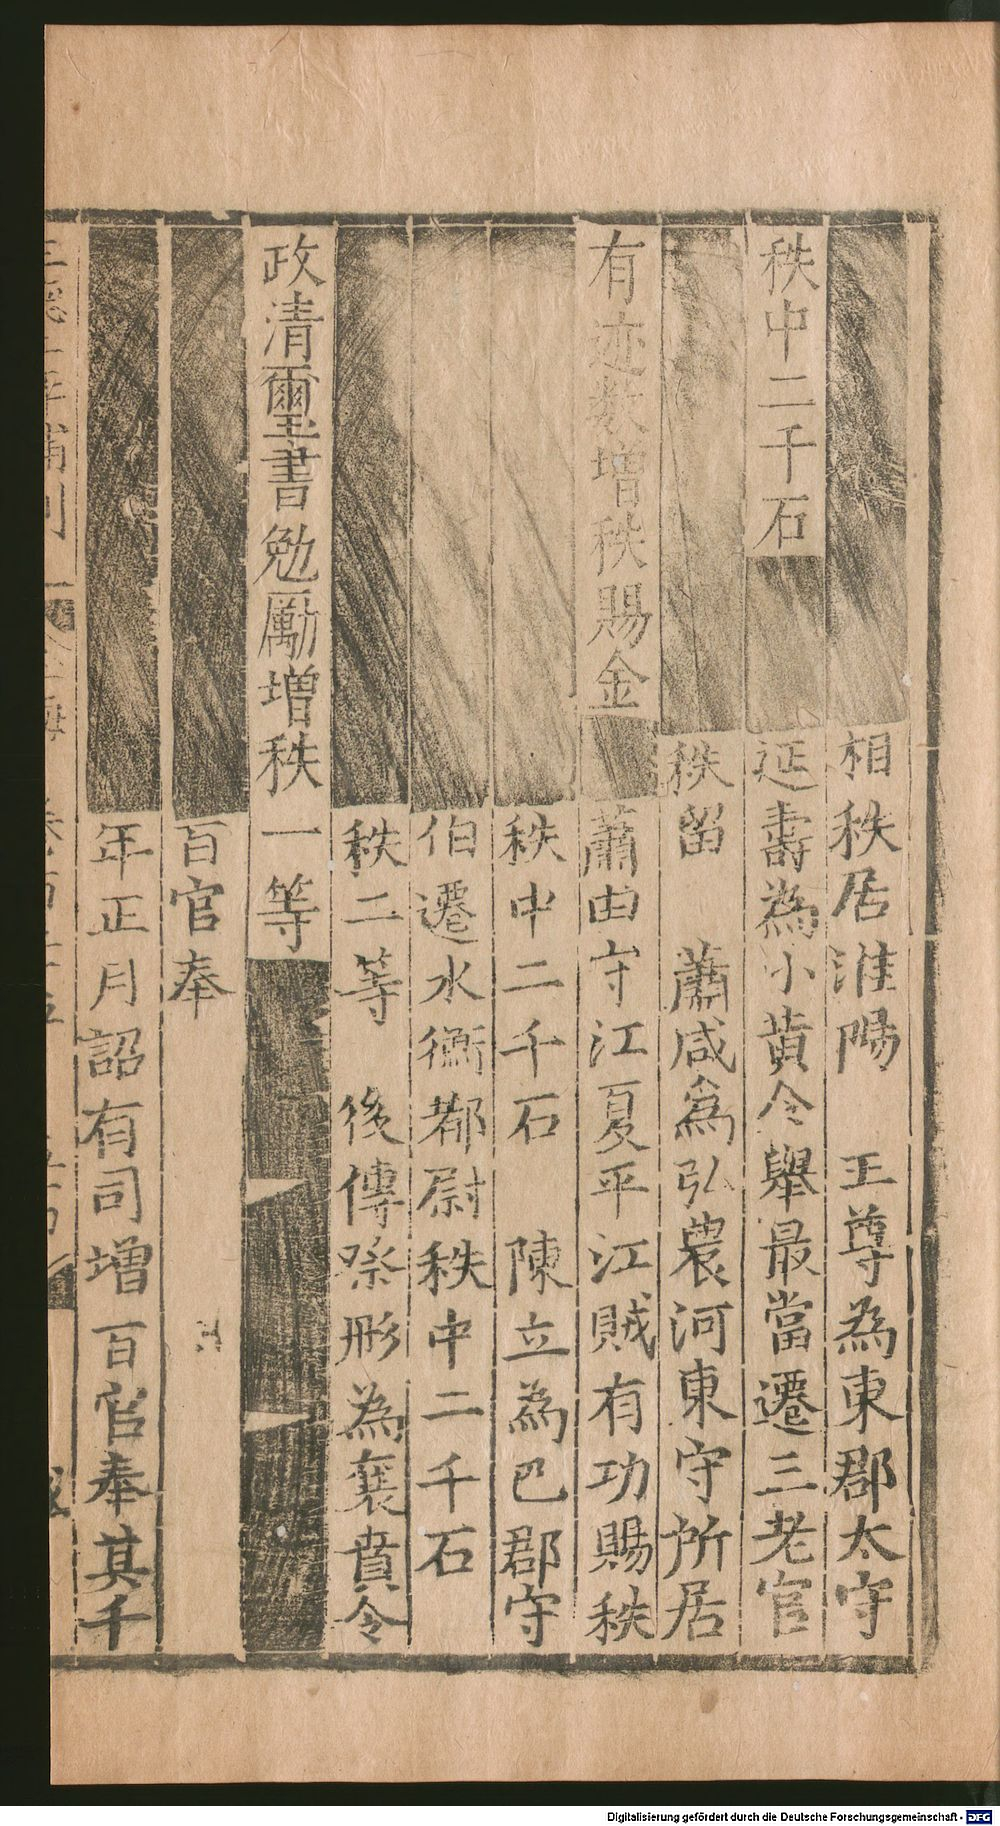 相秩居淮陽　王尊為東郡太守
秩中二千石
延壽為小黃令舉最當遷三老官
秩留　蕭咸為弘農河東守所居
有迹數增秩賜金
蕭由守江夏平江賊有功賜秩
秩中二千石　陳立為巴郡守
伯遷水衡都尉秩中二千石
秩二等　後傳祭肜為襄賁令
政清璽書勉厲增秩一等
百官奉
年正月詔有司增百官奉其千
Digitalisierung gefördert durch die Deutsche Forschungsgemeinschaft - DFG